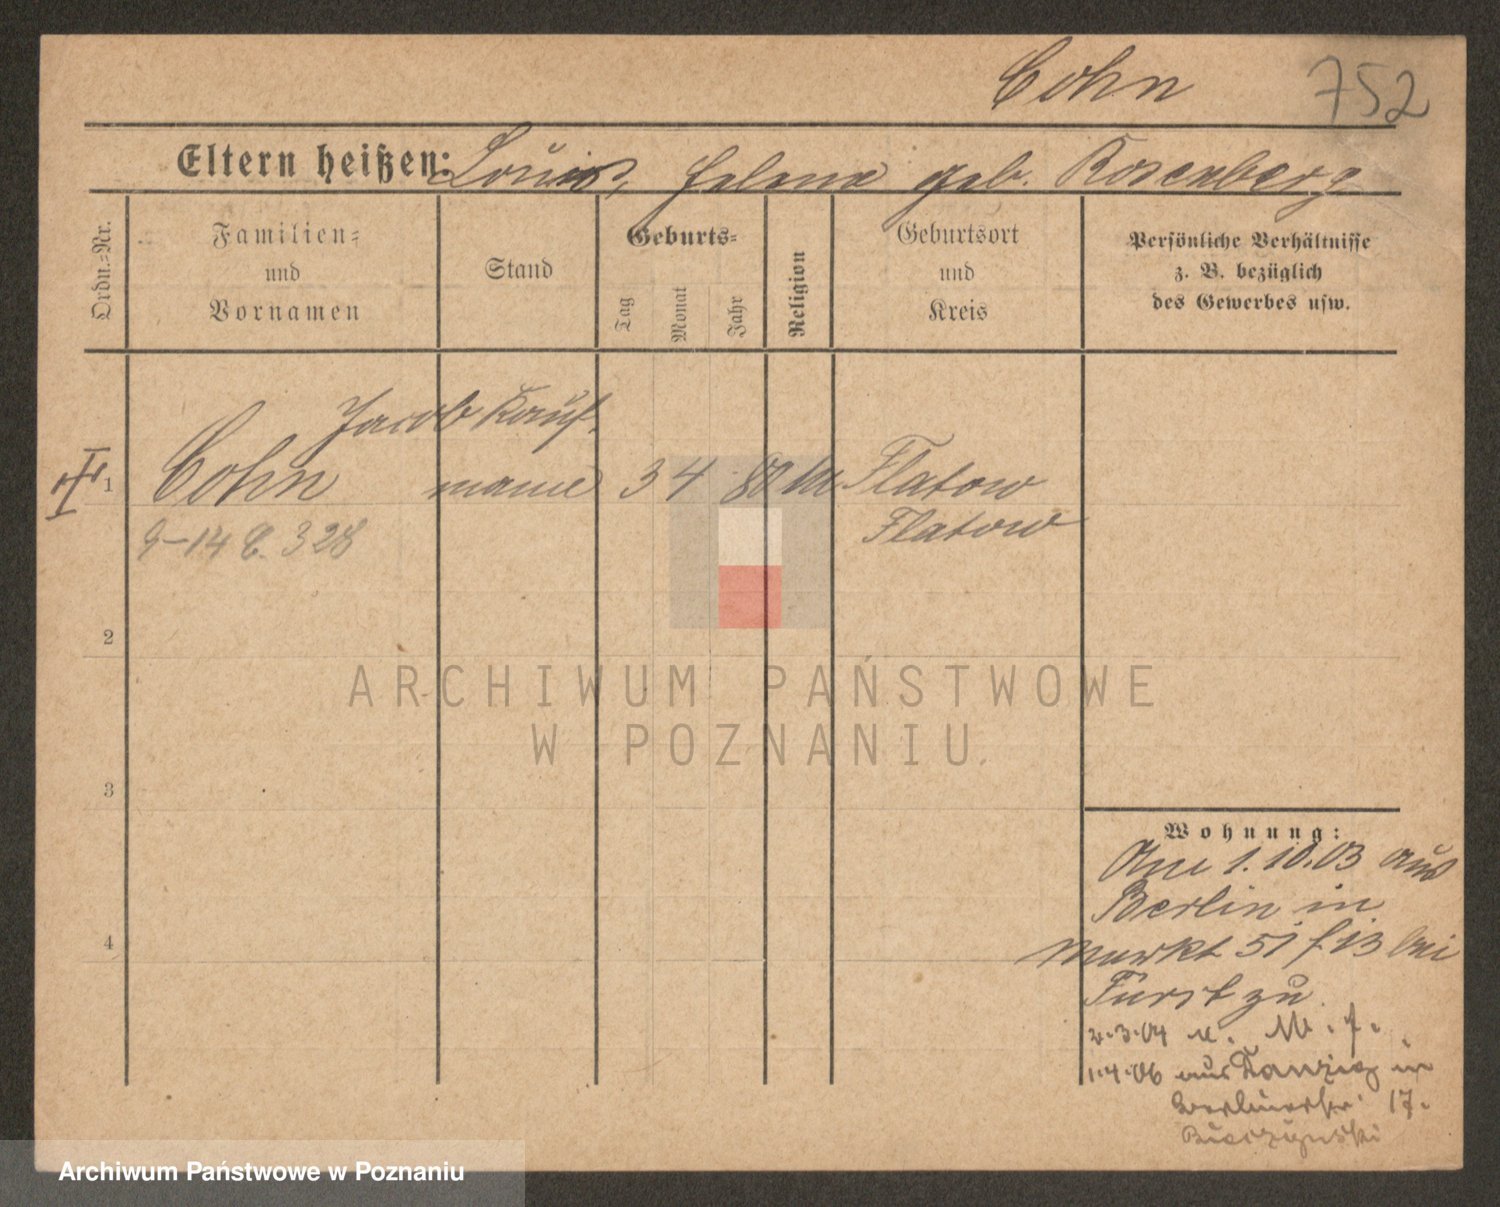 Cohn 752
Eltern heißen: Louis, Helene geb. Rosenberg
Ordn.-Nr.
Familien-
und
Vornamen
Stand
Geburts-
Tag
Monat
Jahr
Religion
Geburtsort
und
Kreis
Persönliche Verhältnisse
z. B. bezüglich
des Gewerbes usw.
Jacob Kauf-
1 Cohn mann 3 4 80 m Flatow
9-14 C. 328 Flatow
2
3
4
Wohnung:
Am 1.10.03 aus
Berlin in
Markt 51 f 13 bei
Fürst zu
2.3.04 n.
1.4.06 aus Danzig in
Berlinerstr. 17.
ARCHIWUM PAŃSTWOWE
W POZNANIU
Archiwum Państwowe w Poznaniu